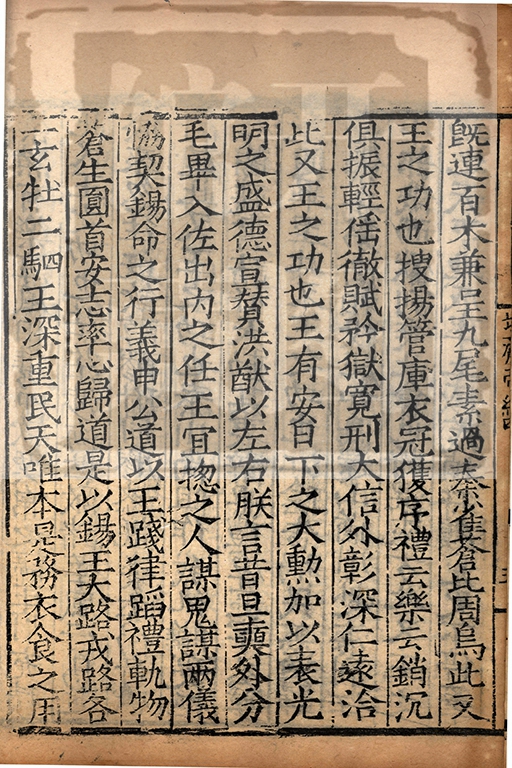 既連百木兼呈九尾素過秦雀蒼比周烏此又
王之功也搜揚管庫衣冠獲序禮云樂云銷沉
俱振輕徭徹賦矜獄寬刑大信外彰深仁遠洽
此又王之功也王有安日下之大勲加以表光
明之盛德宣賛洪猷以左右朕言昔旦奭外分
毛畢入佐出內之任王冝揔之人謀鬼謀兩儀
恊契錫命之行義申公道以王踐律蹈禮軌物
蒼生圓首安志率心歸道是以錫王大路戎路各
一玄牡二駟王深重民天唯本是務衣食之用